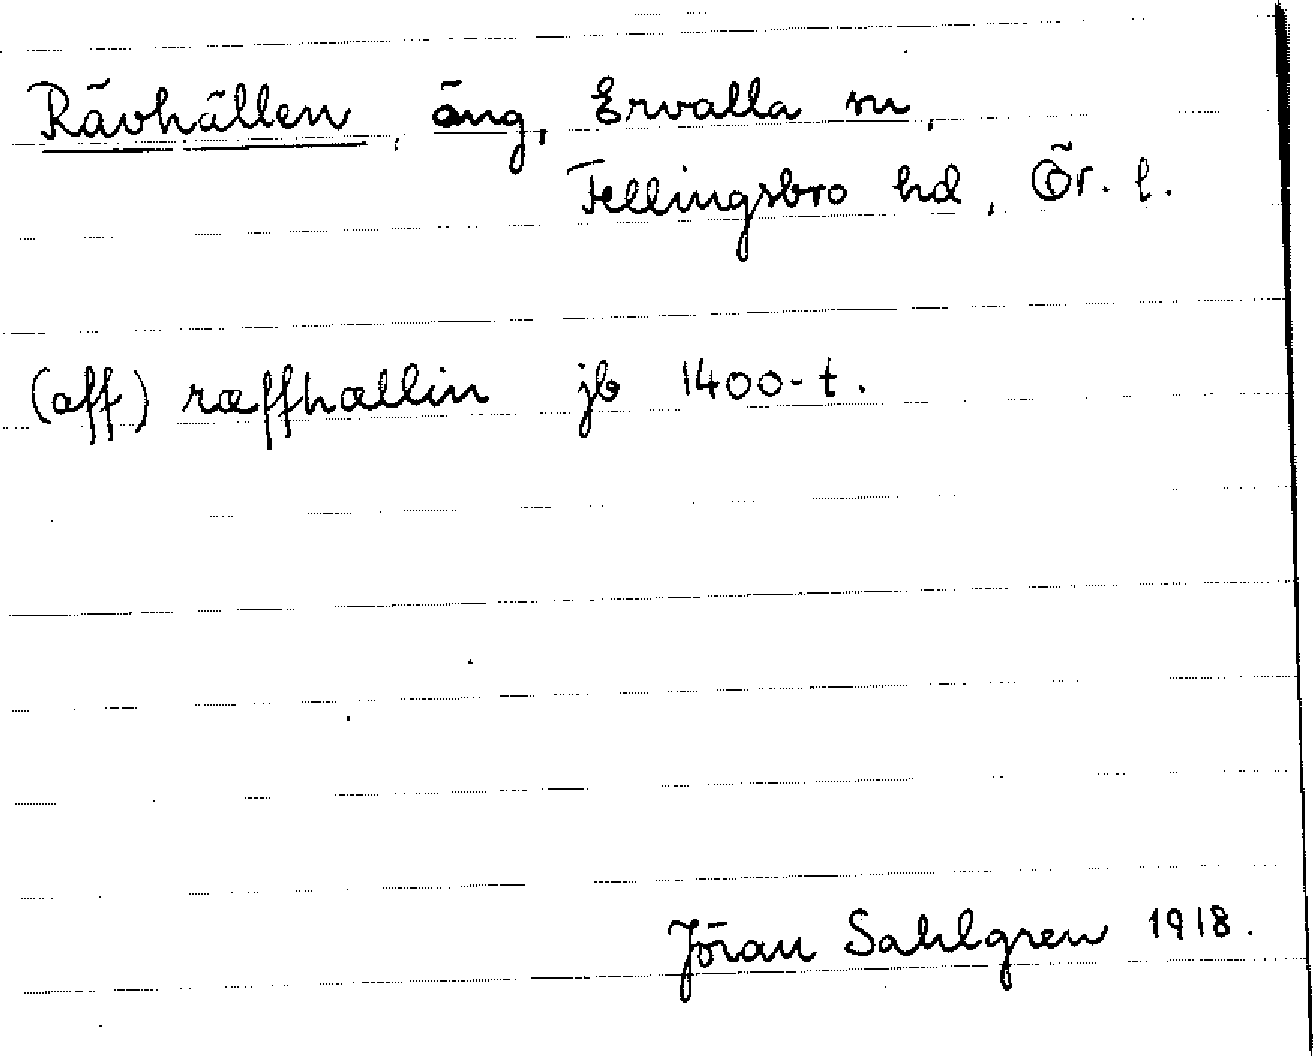 Rävhällen, äng, Ervalla sn,
Fellingsbro hd, Ör. l.
(aff) ræffhællin jb 1400-t.
Jöran Sahlgren 1918.